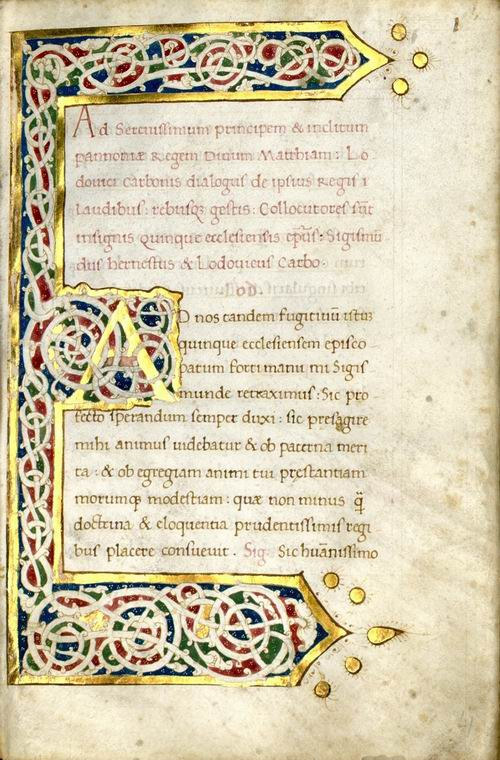 Ad Serenissimum principem & inclitum
pannoniæ Regem Diuum Matthiam: Lo
douici Carbonis dialogus de ipsius Regis
laudibus: rebusq; gestis: Collocutores sūt
insignis quinque ecclesiensis ep̄us: Sigismū
dus hernestus & Lodouicus Carbo.
AD nos tandem fugitiuū istū
quinque ecclesiensem episco
patum forti manu mi Sigis
munde retraximus: Sic pro
fecto sperandum semper duxi: sic presagire
mihi animus uidebatur & ob paterna meri
ta: & ob egregiam animi tui prestantiam
morumq; modestiam: quæ non minus q̄
doctrina & eloquentia prudentissimis regi
bus placere consueuit. Sig. Sic huānissimo